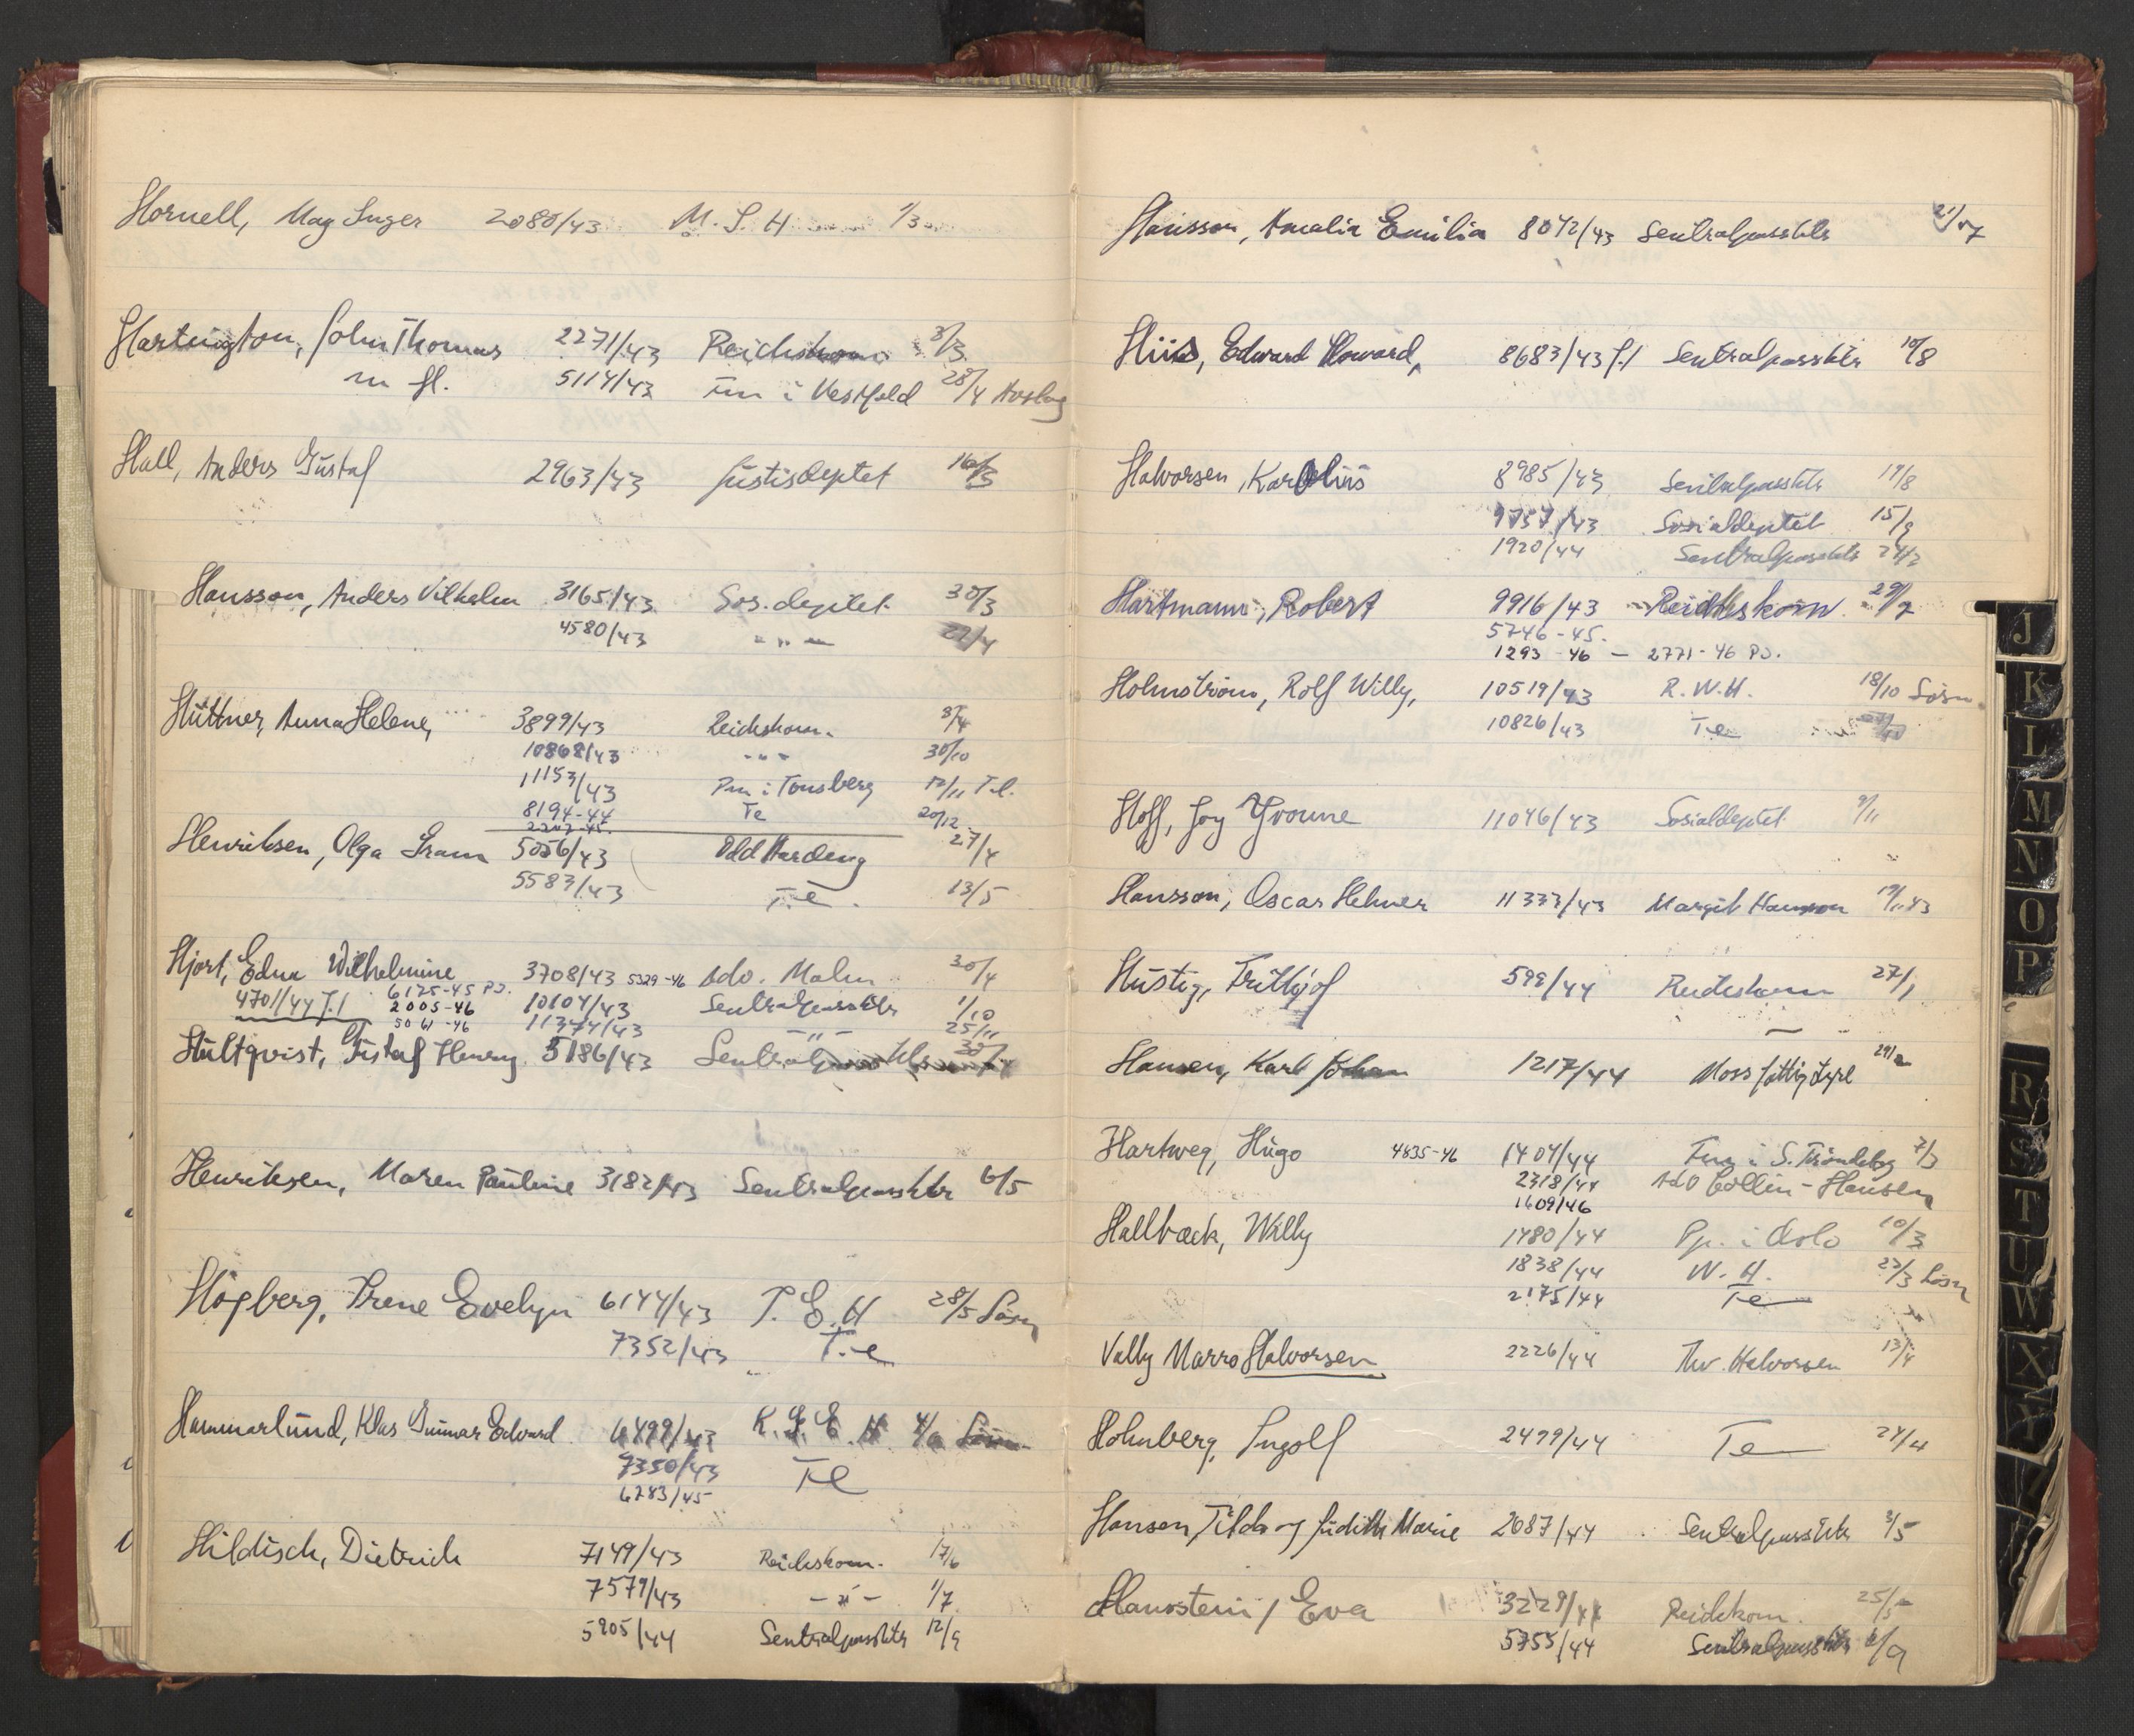 Hornell, May Inger 2080/43 M. I. H 1/3
Hartington, John Thomas 2271/43 Reichskom 3/3
m fl. 5114/43 Fm i Vestfold 28/4 Avslag
Hall, Anders Gustaf 2963/43 Justisdeptet 16/3
Hansson, Anders Vilhelm 3165/43 Sos. deptet 30/3
4580/43 - " - 22/4
Hüttner, Anna Helene, 3899/43 Reichskom. 8/4
10868/43 - " - 30/10
11153/43 Pm i Tønsberg 12/11 T.l.
8194-44 Te 20/12
2202-45.
Henriksen, Olga Iram 5056/43 Odd Hardeng 27/4
5583/43 T.e. 13/5
Hjort, Edna Wilhelmine 3708/43 5329-46 Adv. Malm 30/4
6125-45 PJ.
4701/44 J.l 2005-46 10104/43 Sentralpassktr 1/10
5061-46 11374/43 - " - 25/11
Hultqvist, Gustaf Henry 5186/43 Sentralpassktr 30/4
Henriksen, Maren Pauline 3182/43 Sentralpassktr 6/5
Högberg, Irene Evelyn 6144/43 I. E. H 28/5 Løsn
7352/43 T.e
Hammarlund, Klas Gunnar Edvard 6499/43 K. G. E. H 4/6 Løsn
7350/43 Te
6283/45
Hildisch, Dietrich 7149/43 Reichskom. 17/6
7579/43 - " - 1/7
5905/44 Sentralpassktr 12/9
Hansson, Amalia Emilia 8042/43 Sentralpassktr 21/7
Hiis, Edward Howard, 8683/43 J.l Sentralpassktr 10/8
Halvorsen, Karolius 8985/43 Sentralpassktr 19/8
9757/43 Sosialdeptet 15/9
1920/44 Sentralpassktr
Hartmann, Robert 9916/43 Reichskom 29/9
5746-45.
1293-46 - 2771-46 PJ.
Holmström, Rolf Willy, 10519/43 R. W. H. 18/10 Løsn
10826/43 Te
Hoff, Joy Yvonne 11046/43 Sosialdeptet 9/11
Hansson, Oscar Helmer 11333/43 Margit Hansson 19/11 43
Hustig, Frithjof 599/44 Reichskom 27/1
Hansen, Karl Johan 1217/44 Moss fattigstyre 29/2
Hartweg, Hugo 4835-46 1404/44 Fm i S. Trøndelag 7/3
2318/44 Adv Collin-Hansen
1609/46
Hallbäck, Willy 1480/44 Pp. i Oslo 10/3
1838/44 W. H. 22/3 Løsn
2175/44 Te
Vally Marro Halvorsen 2226/44 Thv. Halvorsen 13/4
Holmberg, Ingolf 2499/44 Te 24/4
Hansen, Tilda og Judith Marie 2687/44 Sentralpassktr 3/5
Hanstein, Eva 3229/44 Reichkom. 25/5
5755/44 Sentralpassktr 6/9
J
K
L
M
N
O
P
R
S
T
U
W
X
Y